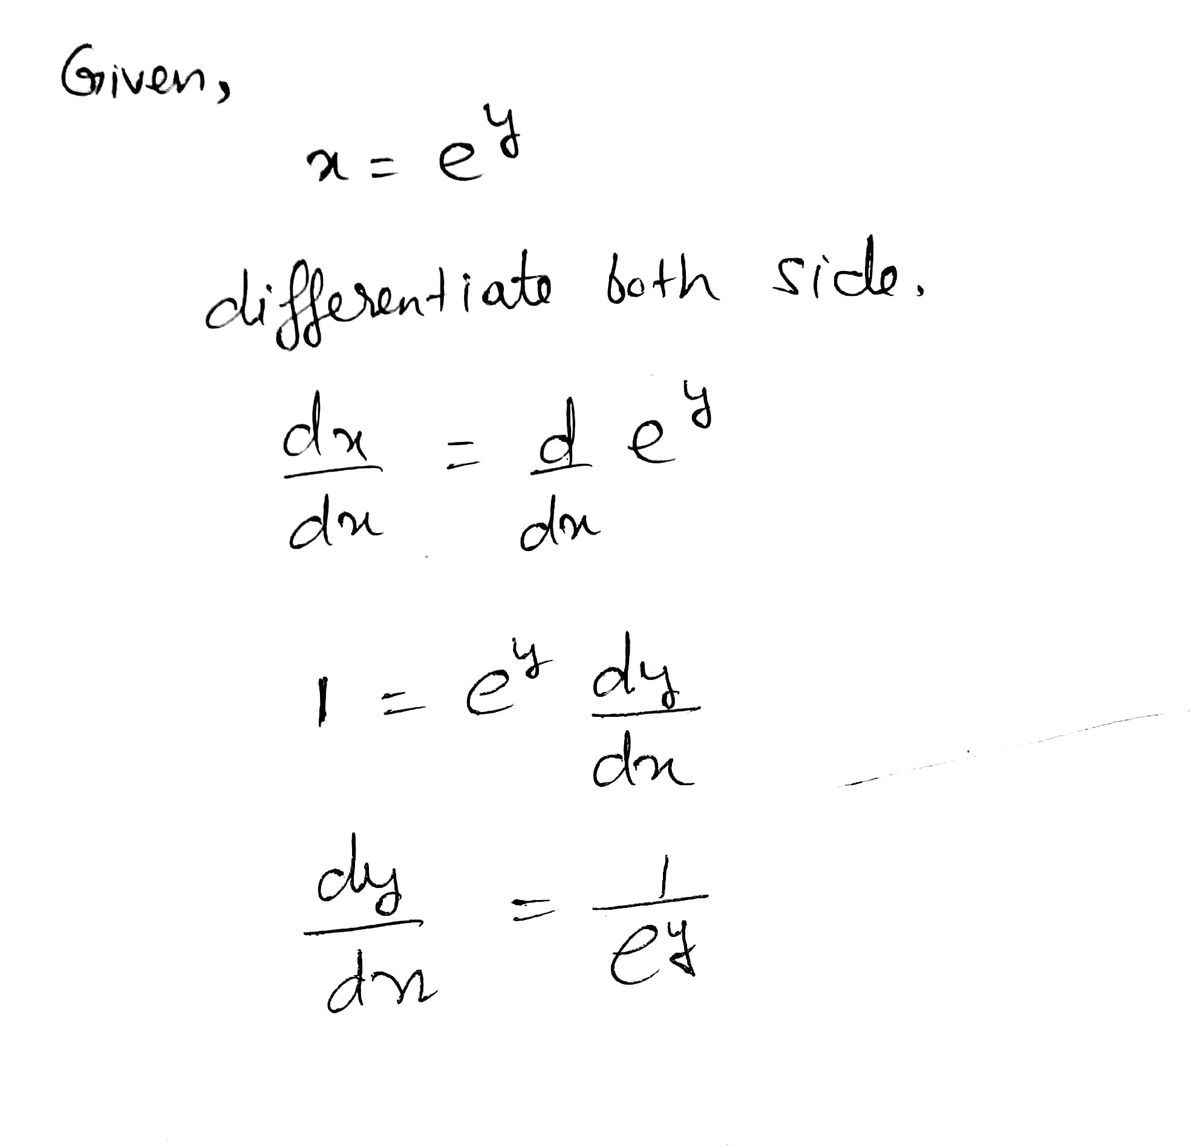 Given,
x = e^y
differentiate both side.
dx/dx = d/dx e^y
1 = e^y dy/dx
dy/dx = 1/e^y